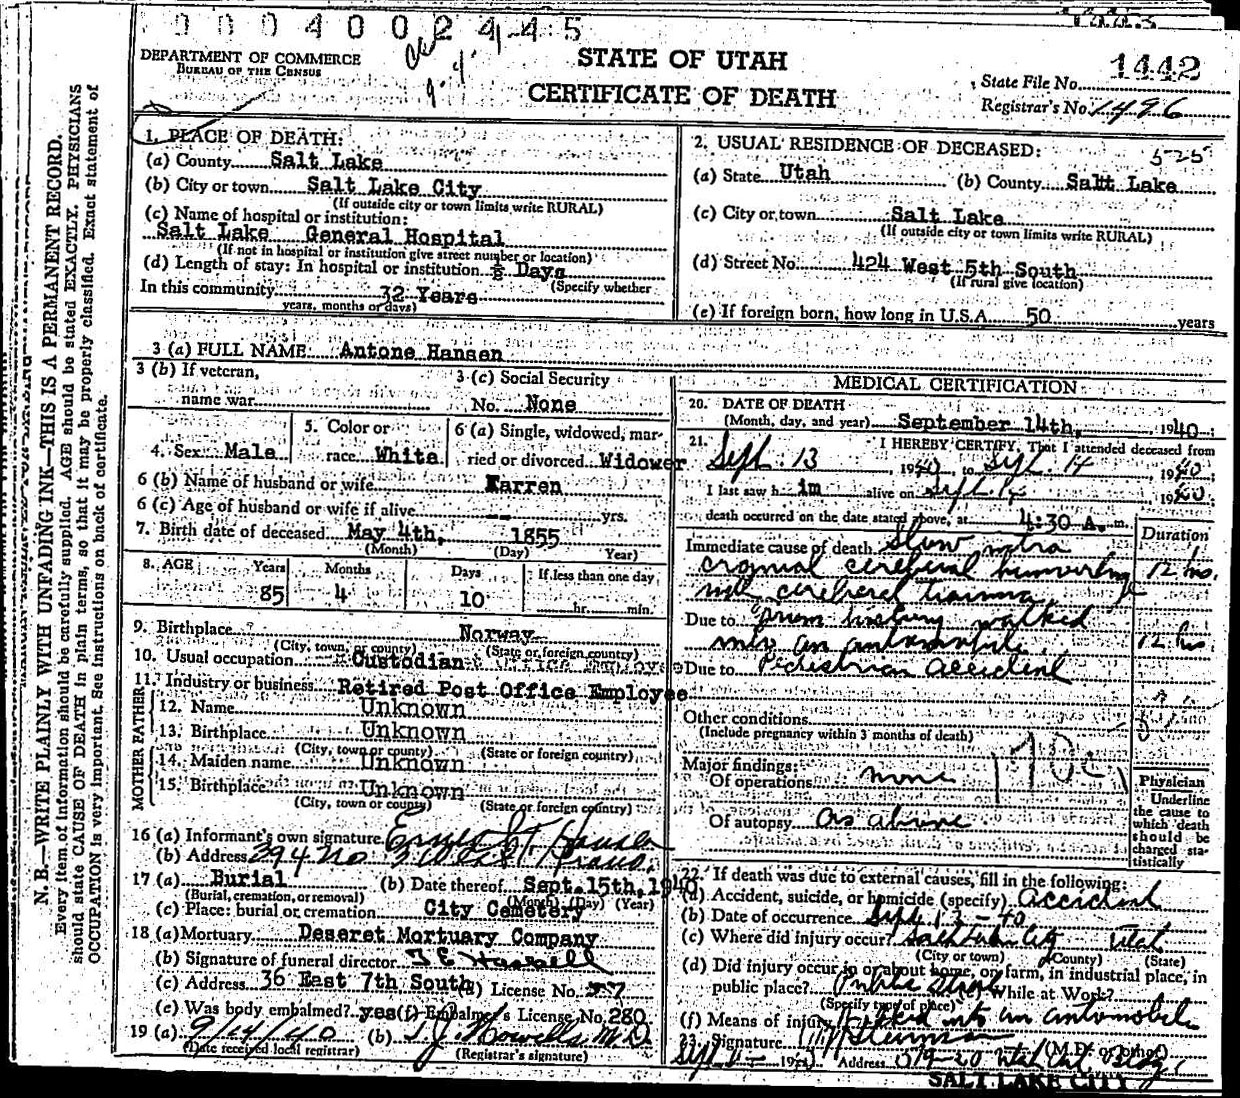 0004002445
DEPARTMENT OF COMMERCE
BUREAU OF THE CENSUS
STATE OF UTAH
CERTIFICATE OF DEATH
State File No. 1442
Registrar's No. 1496
N. B.—WRITE PLAINLY WITH UNFADING INK—THIS IS A PERMANENT RECORD.
Every item of information should be carefully supplied. AGE should be stated EXACTLY. PHYSICIANS
should state CAUSE OF DEATH in plain terms, so that it may be properly classified. Exact statement of
OCCUPATION is very important. See instructions on back of certificate.
1. PLACE OF DEATH:
(a) County Salt Lake
(b) City or town Salt Lake City
(If outside city or town limits write RURAL)
(c) Name of hospital or institution:
Salt Lake General Hospital
(If not in hospital or institution give street number or location)
(d) Length of stay: In hospital or institution ½ Days
(Specify whether
In this community 32 Years
years, months or days)
2. USUAL RESIDENCE OF DECEASED:
525
(a) State Utah (b) County Saltt Lake
(c) City or town Salt Lake
(If outside city or town limits write RURAL)
(d) Street No. 424 West 5th South
(If rural give location)
(e) If foreign born, how long in U.S.A. 50 years
3 (a) FULL NAME Antone Hansen
3 (b) If veteran,
name war
3 (c) Social Security
No. None
4. Sex Male
5. Color or
race White
6 (a) Single, widowed, mar-
ried or divorced Widower
6 (b) Name of husband or wife Karren
6 (c) Age of husband or wife if alive -- yrs.
7. Birth date of deceased May 4th, 1855
(Month) (Day) Year)
8. AGE Years Months Days If less than one day
85 4 10 hr. min.
9. Birthplace Norway
(City, town, or county) (State or foreign country)
10. Usual occupation Custodian
11. Industry or business Retired Post Office Employee
FATHER
12. Name Unknown
13. Birthplace Unknown
(City, town or county) (State or foreign country)
MOTHER
14. Maiden name Unknown
15. Birthplace Unknown
(City, town or county) (State or foreign country)
16 (a) Informant's own signature Ernest T. Hansen
(b) Address 394 No.
17 (a) Burial (b) Date thereof Sept. 15th, 1940
(Burial, cremation, or removal) (Month) (Day) (Year)
(c) Place: burial or cremation City Cemetery
18 (a) Mortuary Deseret Mortuary Company
(b) Signature of funeral director
(c) Address 36 East 7th South (d) License No.
(e) Was body embalmed? yes (f) Embalmer's License No. 280
19 (a) 9/14/40 (b) M.D.
(Date received local registrar) (Registrar's signature)
MEDICAL CERTIFICATION
20. DATE OF DEATH
(Month, day, and year) September 14th, 1940
21. I HEREBY CERTIFY, That I attended deceased from
Sept. 13, 1940, to Sept. 14, 1940.
I last saw him alive on Sept. 14 1940.
death occurred on the date stated above, at 4:30 A. m.
Duration
Immediate cause of death Slow intra
cranial cerebral hemorrhage 12 hrs.
with cerebral trauma
Due to from history walked
into an automobile 12 hrs.
Due to Pedestrian accident
Other conditions
(Include pregnancy within 3 months of death)
170c
Major findings:
Of operations none
Of autopsy as above
Physician
Underline
the cause to
which death
should be
charged sta-
tistically
22. If death was due to external causes, fill in the following:
(a) Accident, suicide, or homicide (specify) Accident
(b) Date of occurrence Sept 13-40
(c) Where did injury occur? Salt Lake City Utah
(City or town) (County) (State)
(d) Did injury occur in or about home, on farm, in industrial place, in
public place? Public Street (e) While at Work?
(Specify type of place)
(f) Means of injury Walked into an automobile
23. Signature
(M.D. or other)
Address
SALT LAKE CITY